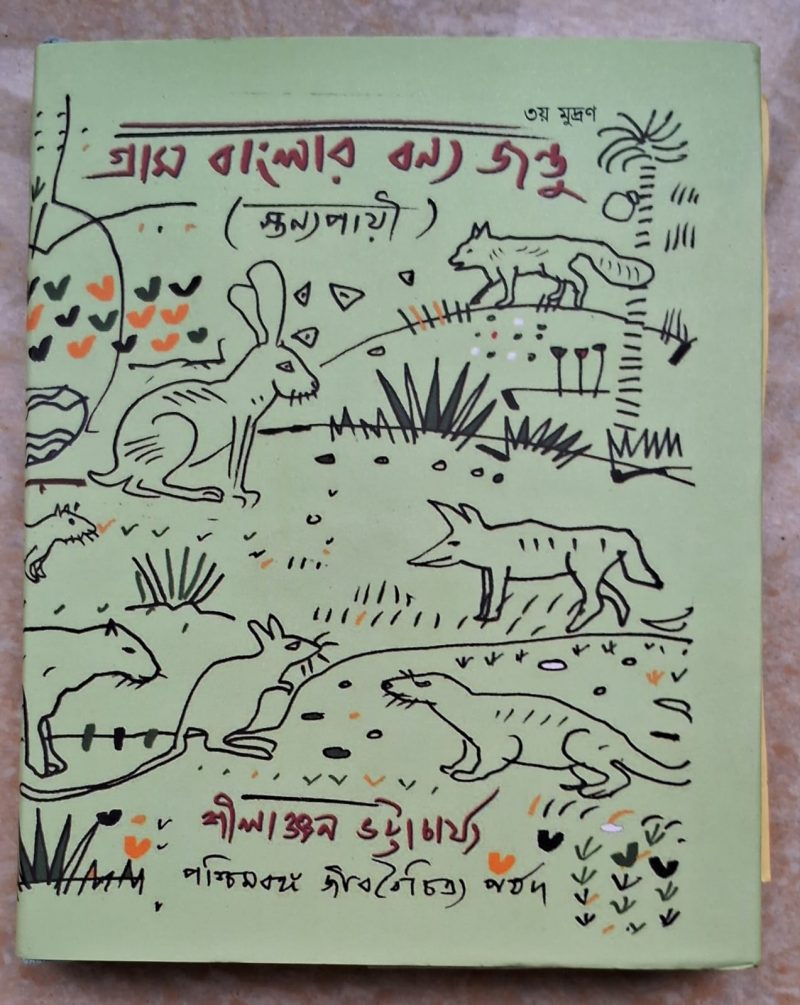 ৩য় মুদ্রণ
গ্রাম বাংলার বন্য জন্তু
(স্তন্যপায়ী)
শীলাঞ্জন ভট্টাচার্য্য
পশ্চিমবঙ্গ জীববৈচিত্র্য পর্ষদ